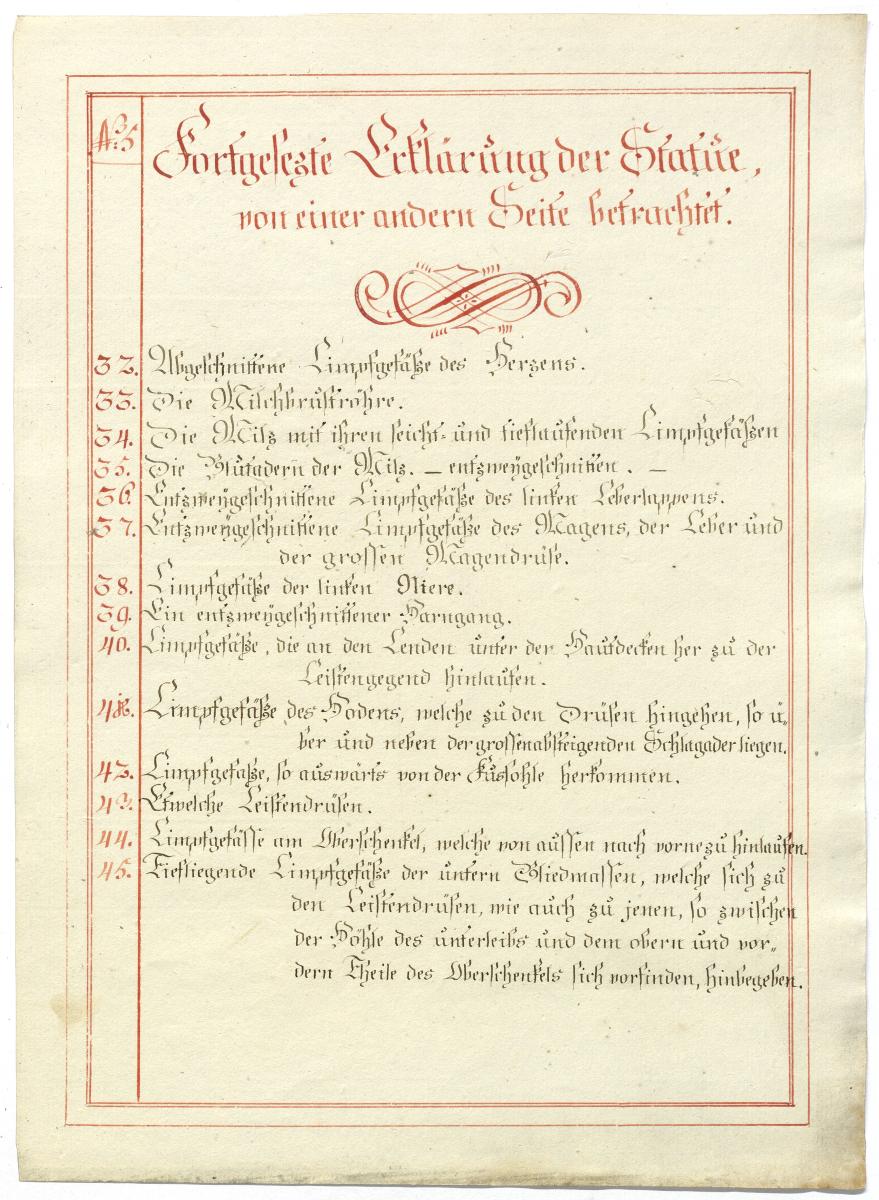 N: 35
Fortgesezte Erklärung der Statue,
von einer andern Seite betrachtet.
32. Abgeschnittene Limpfgefäße des Herzens.
33. Die Milchbruströhre.
34. Die Milz mit ihren seicht- und tieflaufenden Limpfgefäßen
35. Die Blutadern der Milz. – entzweygeschnitten. –
36. Entzweygeschnittene Limpfgefäße des linken Leberlappens.
37. Entzweygeschnittene Limpfgefäße des Magens, der Leber und
der grossen Magendrüse.
38. Limpfgefäße der linken Niere.
39. Ein entzweygeschnittener Harngang.
40. Limpfgefäße, die an den Lenden unter der Hautdecken her zu der
Leistengegend hinlaufen.
41. Limpfgefäße des Hodens, welche zu den Drüsen hingehen, so ü„
ber und neben der grossen absteigenden Schlagader liegen.
42. Limpfgefäße, so auswärts von der Fussohle herkommen.
43. Etwelche Leistendrüsen.
44. Limpfgefässe am Oberschenkel, welche von aussen nach vorne zu hinlaufen.
45. Tiefliegende Limpfgefäße der untern Gliedmassen, welche sich zu
den Leistendrüsen, wie auch zu jenen, so zwischen
der Höhle des unterleibs und dem obern und vor„
dern Theile des Oberschenkels sich vorfinden, hinbegeben.